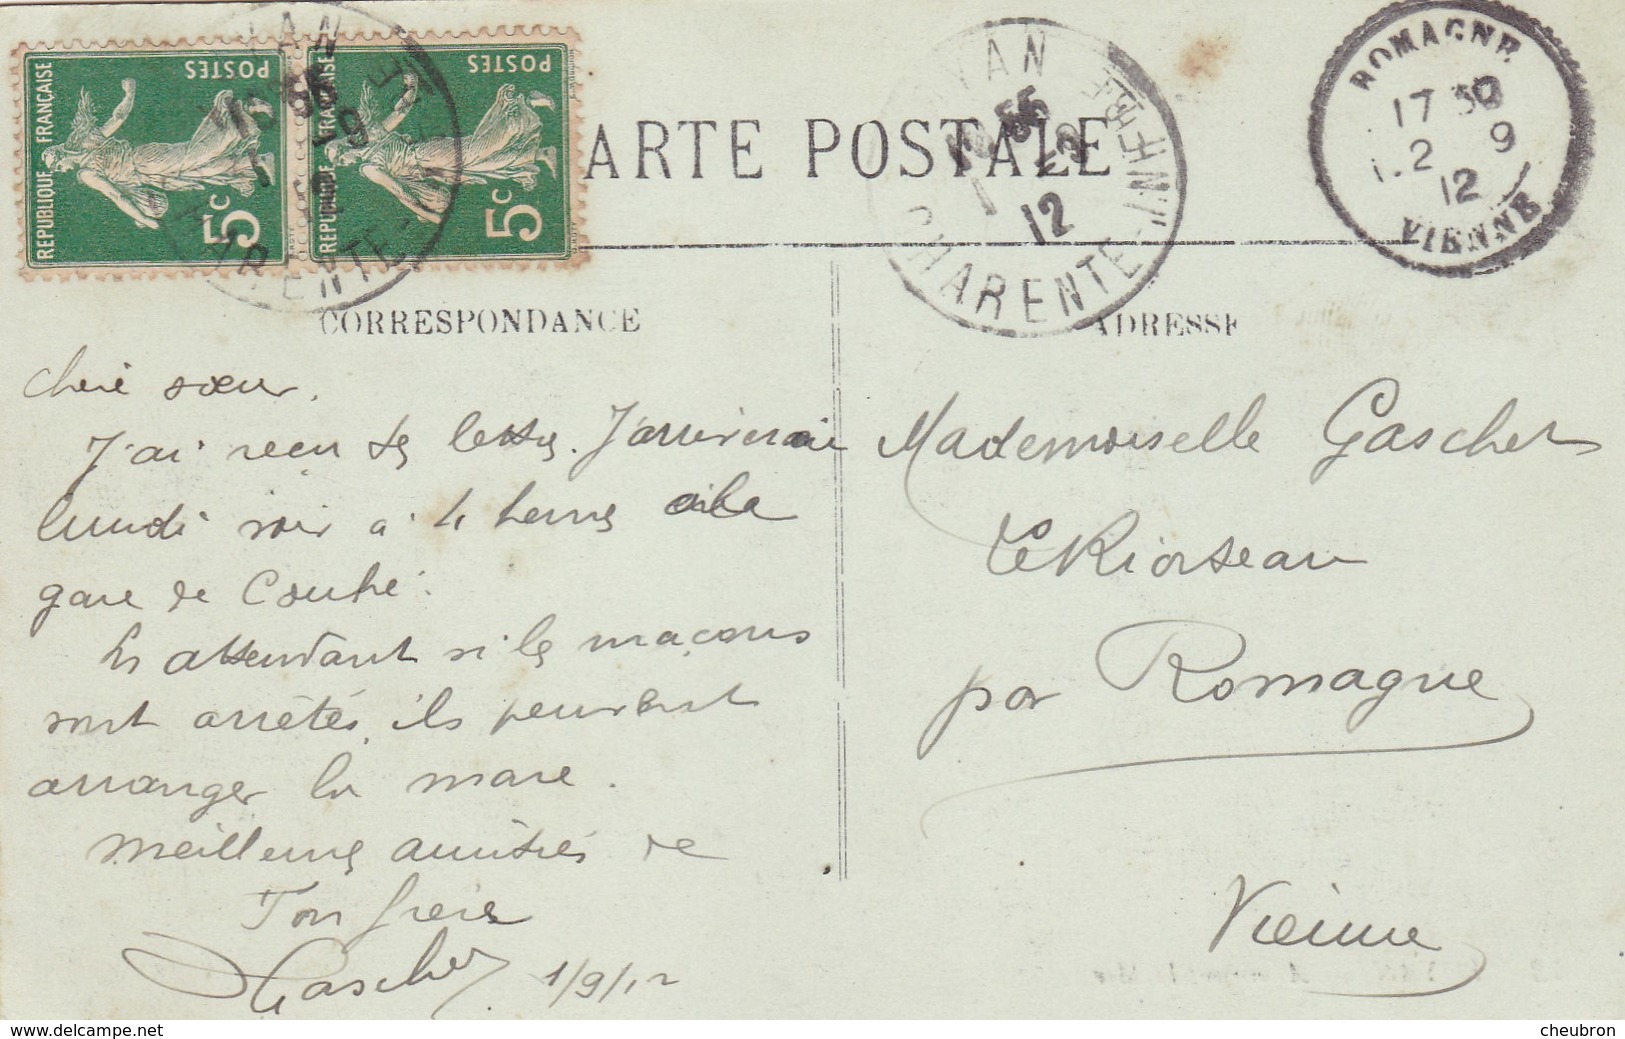 RÉPUBLIQUE FRANÇAISE
POSTES
5c
RÉPUBLIQUE FRANÇAISE
POSTES
5c
CARTE POSTALE
ROYAN
1 - 9
12
CHARENTE-INFRE
ROMAGNE
17 30
2 9
12
VIENNE
CORRESPONDANCE
ADRESSE
Chère sœur.
J'ai reçu ta lettre. J'arriverai
lundi soir à 4 heures à la
gare de Couhé.
En attendant si les maçons
sont arrêtés, ils peuvent
arranger la mare.
Meilleures amitiés de
Ton frère
Gaschet 1/9/12
Mademoiselle Gaschet
par Romagne
Vienne
delcampe.net
cheubron